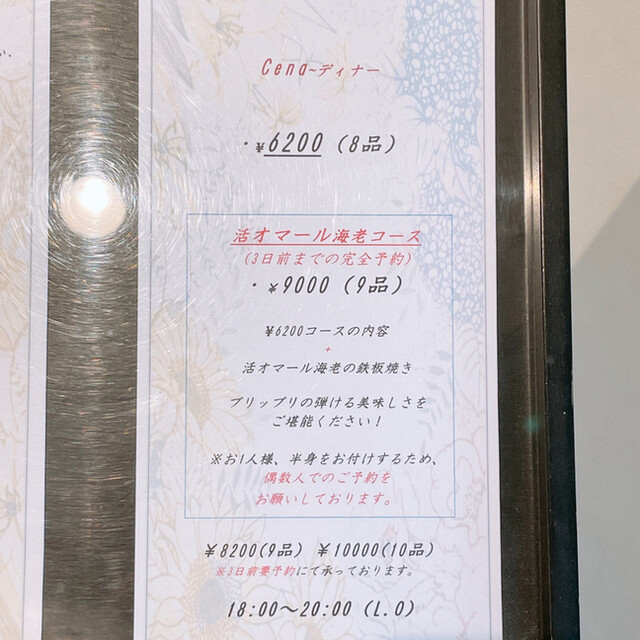 い、
Cena~ディナー
・¥6200 (8品)
活オマール海老コース
(3日前までの完全予約)
・¥9000 (9品)
¥6200コースの内容
+
活オマール海老の鉄板焼き
プリップリの弾ける美味しさを
ご堪能ください！
※お1人様、半身をお付けするため、
偶数人でのご予約を
お願いしております。
¥8200(9品) ¥10000(10品)
※3日前要予約にて承っております。
18:00〜20:00 (L.O)